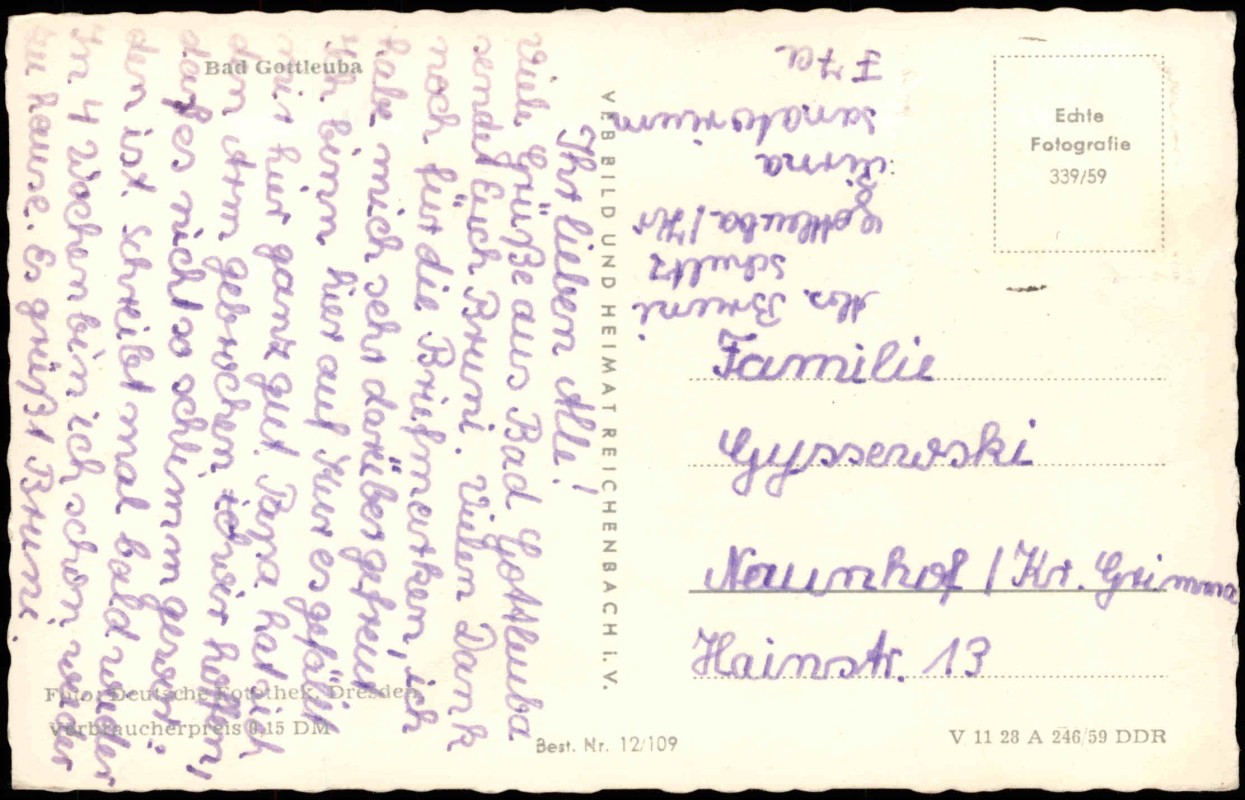 Bad Gottleuba
Ihr lieben Alle!
Viele Grüße aus Bad Gottleuba
sendet Euch Bruni. Vielen Dank
noch für die Briefmarken, ich
habe mich sehr darüber gefreut
Ich binn hier auf Kur es gefällt
mir hier ganz gut. Papa hat sich
den Arm gebrochen, wir hoffen,
daß es nicht so schlimm
den ist. Schreibt mal bald wieder
In 4 Wochen bin ich schon wieder
zu hause. Es grüßt Bruni.
Foto: Deutsche Fotothek, Dresden
Verbraucherpreis 0.15 DM
VEB BILD UND HEIMAT REICHENBACH i. V.
Best. Nr. 12/109
Abs. Bruni
Schultz
Gottleuba / Kr
Pirna
Sanatorium
Echte
Fotografie
339/59
Familie
Gyssewski
Naunhof / Kr. Grimma
Hainstr. 13
V 11 28 A 246/59 DDR